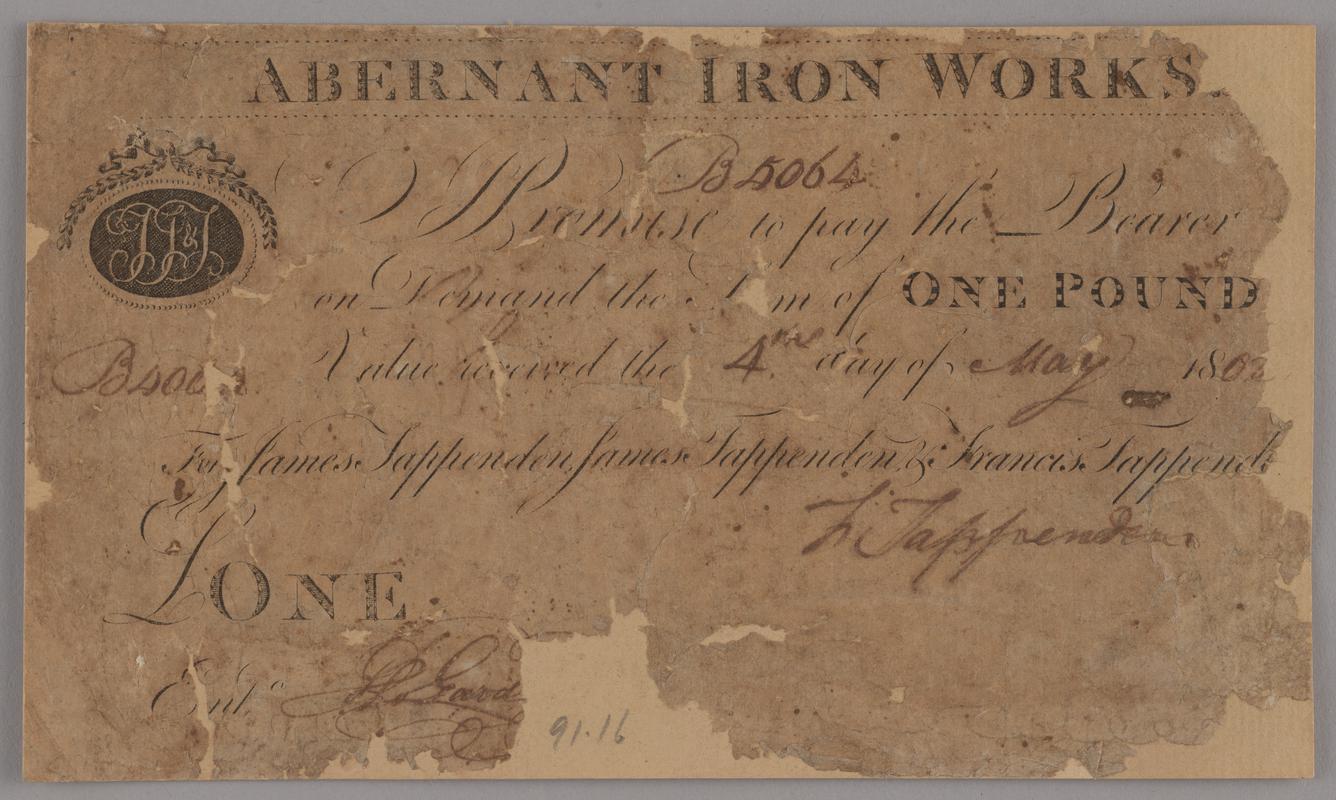 ABERNANT IRON WORKS.
B5064
I Promise to pay the Bearer
on Demand the S m of ONE POUND
Value received the 4th day of May 1802
B506
For James Tappenden, James Tappenden & Francis Tappend
F Tappenden
£ONE
Entd
91.16